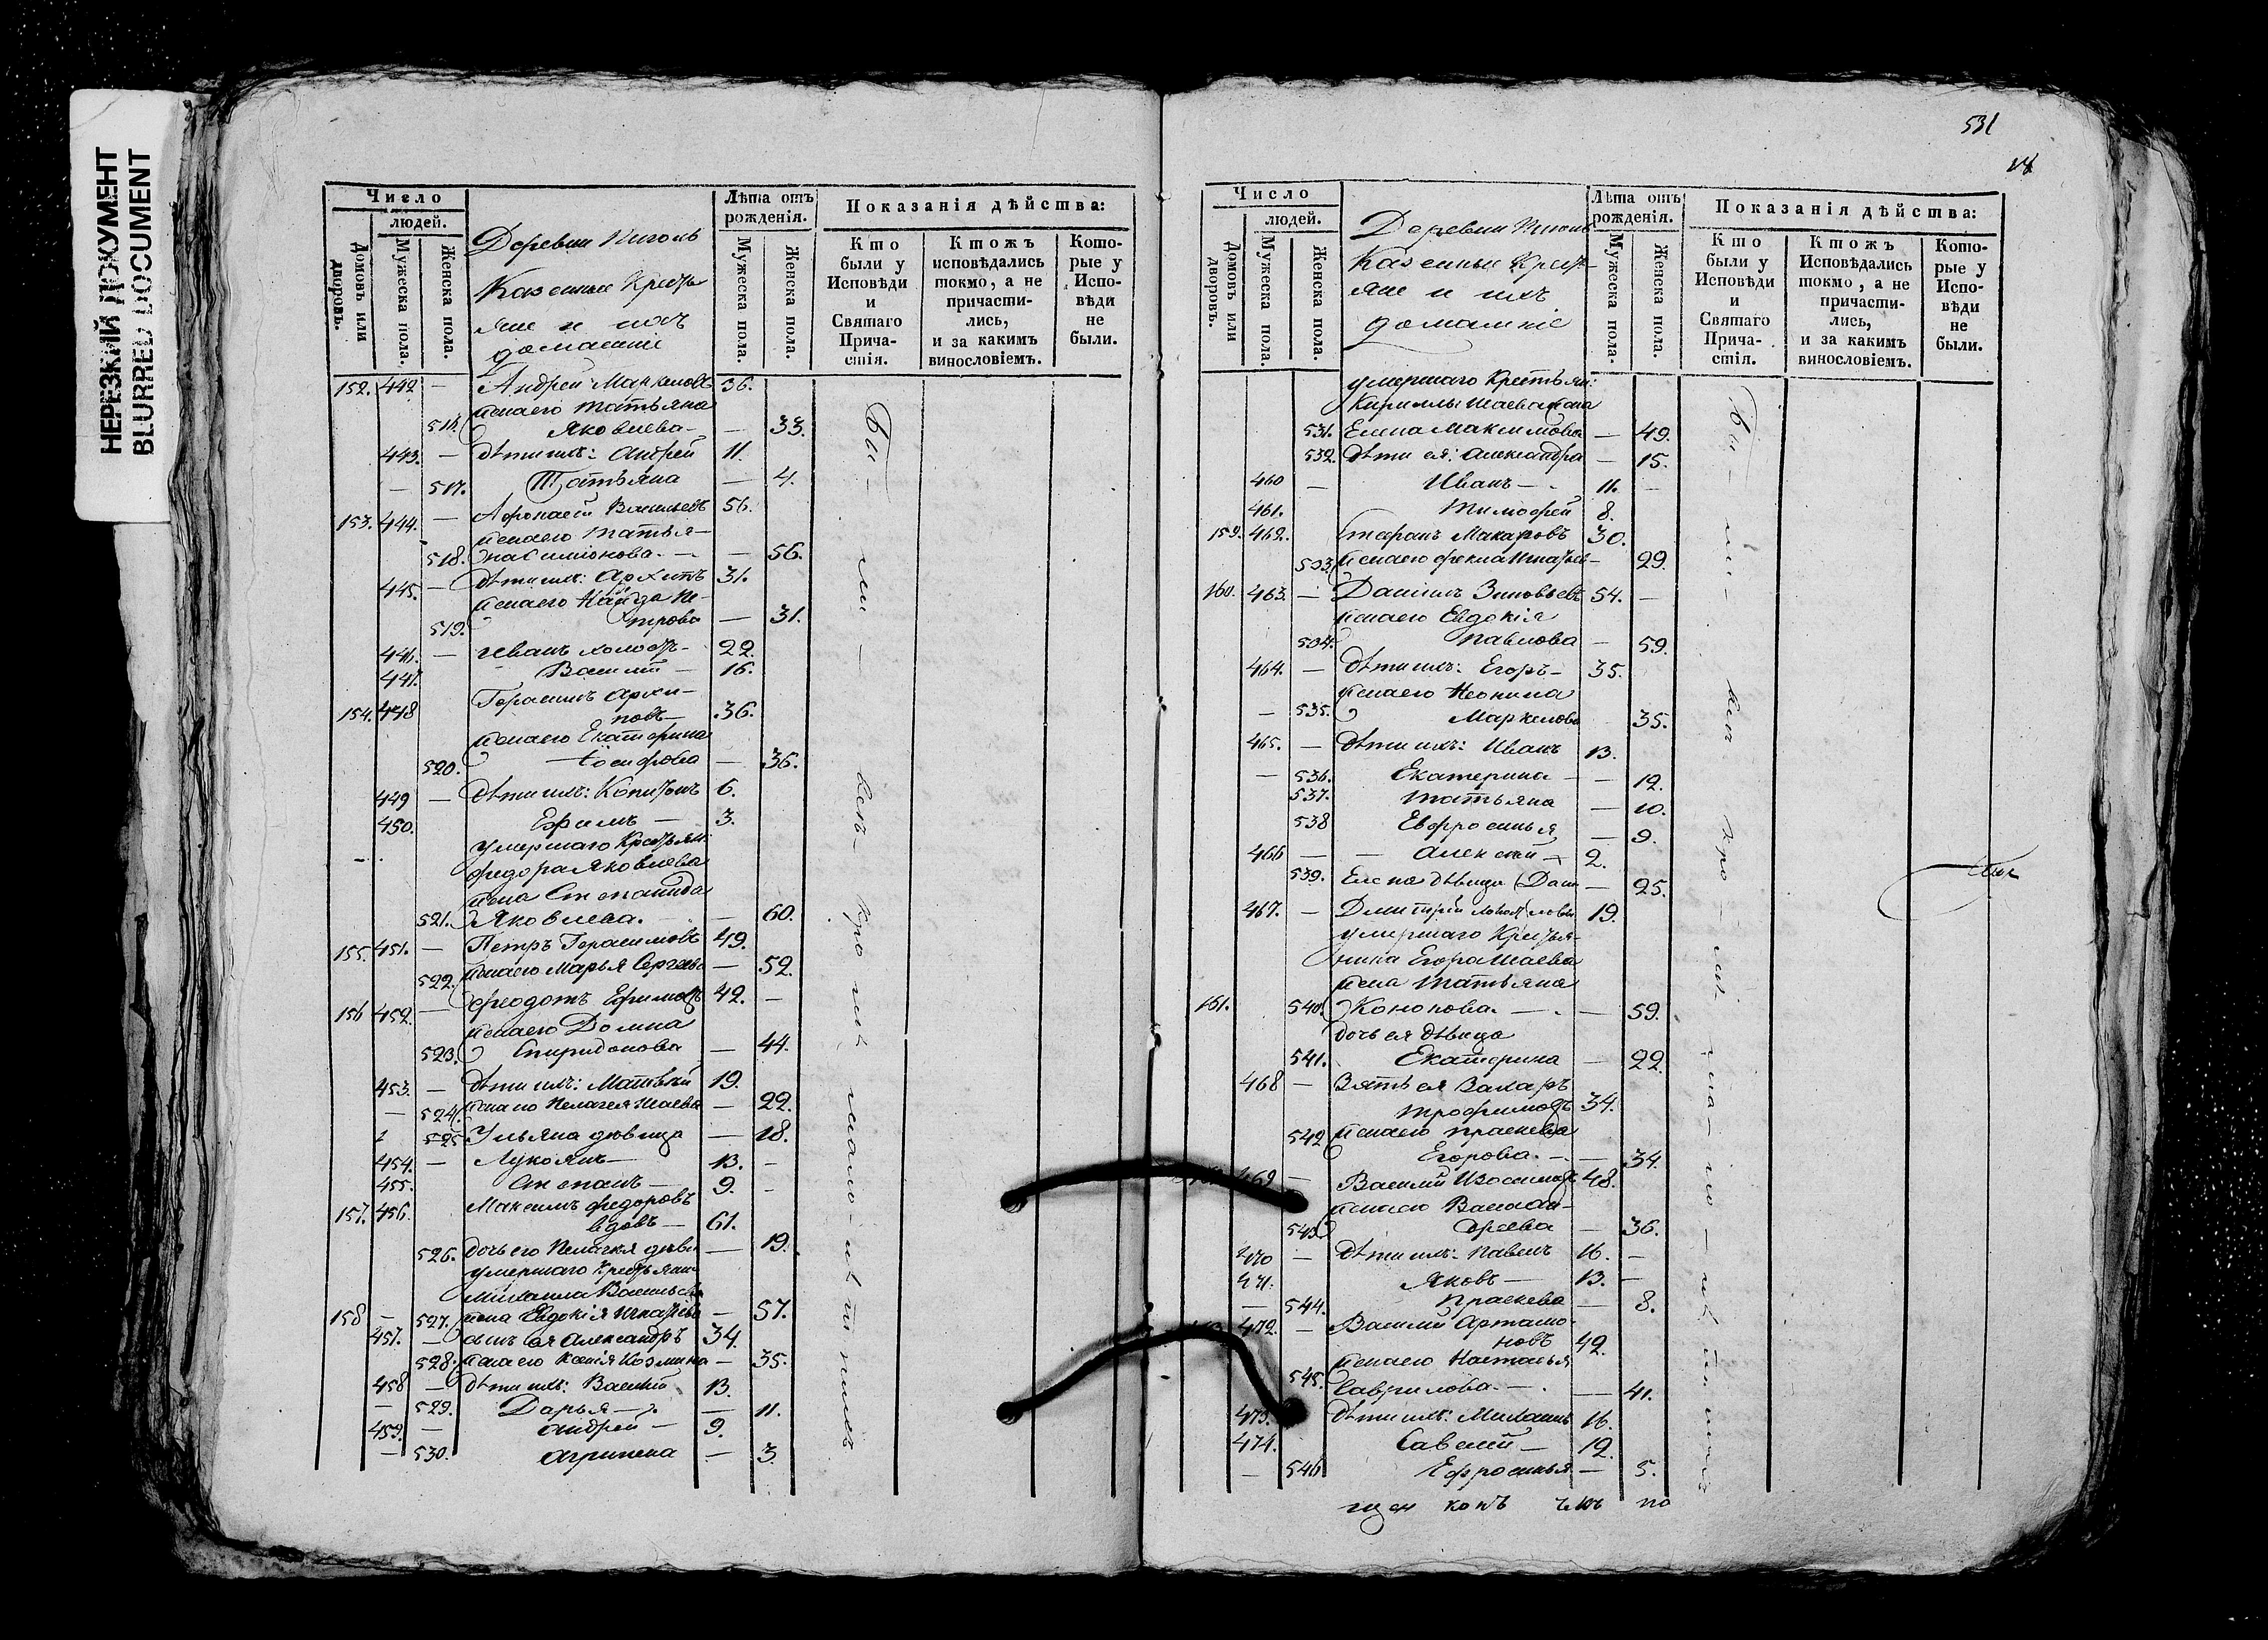 НЕРЕЗКИЙ ДОКУМЕНТ
BLURRED DOCUMENT
Число
людей.
Домовъ или дворовъ.
Мужеска пола.
Женска пола.
Деревни
Казенные Кресть
яне и ихъ
домашніе
Лѣта отъ рожденія.
Мужеска пола.
Женска пола.
Показанія дѣйства:
Кто были у Исповѣди и Святаго Причастія.
Ктожъ исповѣдались токмо, а не причастились, и за какимъ винословіемъ.
Которые у Исповѣди не были.
152. 442 — Андрей Маркеловъ 36.
жена его Татьяна
Яковлева — 33.
443. — дѣти ихъ: Андрей 11.
— 517. Татьяна — 4.
153. 444. — Васильевъ 56.
жена его Татья-
518. на Симіонова — 56.
445. — дѣти ихъ: Архипъ 31.
жена его Пе-
519. трова — 31.
446. — Иванъ холостъ 22.
447. Василій — 16.
154. 448 Герасимъ Архи-
повъ — 36.
жена его Екатерина
520. Іосифова — 36.
449 — дѣти ихъ: Капитонъ 6.
450. Ефимъ — 3.
умершаго Крестьян:
Федора Яковлева
жена Степанида
521. Яковлева. — 60.
155. 451. — Петръ Герасимовъ 49.
522. жена его Марья Сергеева — 52.
156 452. — Феодотъ Ефимовъ 42. —
жена его Домна
523. Спиридонова — 44.
453. — дѣти ихъ: Матвей 19.
— 524. жена его Пелагея Исаева — 22.
525 Ульяна дѣвица — 18.
454. — Лукоянъ — 13. —
455. Степанъ — 9. —
157. 456. Максимъ Федоровъ
вдовъ — 61.
526. дочь его Пелагея дѣви — 19.
умершаго Крестьяни
Михаила Васильева
158 — 527. жена Евдокія Игнатьева — 57.
457. — сынъ ея Александръ 34.
528. жена его Ксенія Козмина — 35.
458 — дѣти ихъ: Василій 13.
— 529. Дарья — 11.
459. — Андрей — 9.
— 530. Агрипена — 3
531
Число
людей.
Домовъ или дворовъ.
Мужеска пола.
Женска пола.
Деревни
Казенные Кресть-
яне и ихъ
домашніе
Лѣта отъ рожденія.
Мужеска пола.
Женска пола.
Показанія дѣйства:
Кто были у Исповѣди и Святаго Причастія.
Ктожъ Исповѣдались токмо, а не причастились, и за какимъ винословіемъ.
Которые у Исповѣди не были.
умершаго Крестьян:
Кириллы Исаева жена
531. Елена Максимова — 49.
532. дѣти ея: Александра — 15.
460 — Иванъ — 11. —
461. Тимофей 8.
159. 462. Макаровъ 30.
533. жена его Фекла Игнатьев — 29.
160. 463. — Даніилъ Зиновьевъ 54. —
жена его Евдокія
534. Павлова — 59.
464. — дѣти ихъ: Егоръ — 35.
жена его Неонила
— 535. Маркелова 35.
465. — дѣти ихъ: Иванъ 13.
— 536. Екатерина — 12.
537. Татьяна — 10.
538 Евфросинья — 9.
466 — Алексей — 2.
539. Елена дѣвица — 25.
467. — Дмитрій 19.
умершаго Крестья-
нина Егора Исаева
жена Татьяна
161. 540. Кононова. — 59.
дочь ея дѣвица
541. Екатерина — 22.
468 — Зять ея Захаръ
Трофимовъ 34.
542 жена его Праскева
Егорова. — 34.
469 — Василій Изосимовъ 48.
жена его Васса Ан-
543 дреева — 36.
470 — дѣти ихъ: Павелъ 16. —
471. Яковъ — 13. —
— 544. Праскева — 8.
472. — Василій Артамо-
новъ 42.
жена его Настасья
545. Гаврилова. — 41.
473. дѣти ихъ: Михаилъ 16.
474. Савелій — 12.
— 546 Ефросинья — 5.